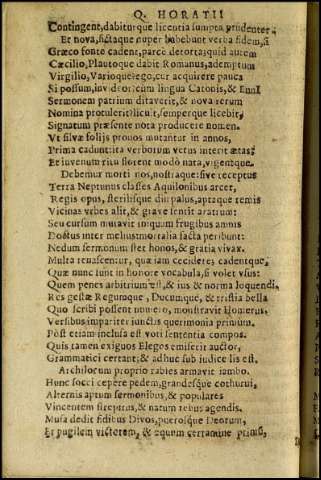 Q. HORATII
Contingent, dabiturque licentia sumpta prudenter:
Et nova, fictaque nuper habebunt verba fidem, si
Græco fonte cadent, parcè detorta; quid autem
Cæcilio, Plautoque dabit Romanus, ademptum
Virgilio, Varioque? ego, cur acquirere pauca
Si possum, invideor; cum lingua Catonis, & Ennî
Sermonem patrium ditaverit, & nova rerum
Nomina protulerit? licuit, semperque licebit,
Signatum præsente nota producere nomen.
Ut silvæ folijs pronos mutantur in annos,
Prima cadunt: ita verborum vetus interit ætas:
Et iuvenum ritu florent modò nata, vigentque.
Debemur morti nos, nostraque: sive receptus
Terra Neptunus classes Aquilonibus arcet,
Regis opus, sterilisque diu palus, aptaque remis
Vicinas urbes alit, & grave sentit aratrum:
Seu cursum mutavit iniquum frugibus amnis
Doctus iter melius: mortalia facta peribunt:
Nedum sermonum stet honos, & gratia vivax.
Multa renascentur, quæ iam cecidere; cadentque,
Quæ nunc sunt in honore vocabula, si volet usus:
Quem penes arbitrium est, & ius & norma loquendi.
Res gestæ Regumque, Ducumque, & tristia bella
Quo scribi possent numero, monstravit Homerus.
Versibus impariter iunctis querimonia primum,
Post etiam inclusa est voti sententia compos.
Quis tamen exiguos Elegos emiserit auctor,
Grammatici certant; & adhuc sub iudice lis est.
Archilocum proprio rabies armavit iambo.
Hunc socci cepere pedem, grandesque cothurni,
Alternis aptum sermonibus, & populares
Vincentem strepitus, & natum rebus agendis.
Musa dedit fidibus Divos, puerosque Deorum,
Et pugilem victorem, & equum certamine primũ,